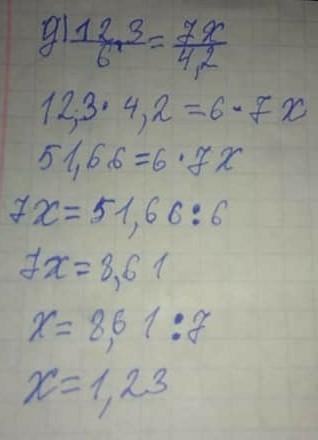 д) 12,3/6 = 7x/4,2
12,3 · 4,2 = 6 · 7x
51,66 = 6 · 7x
7x = 51,66 : 6
7x = 8,61
x = 8,61 : 7
x = 1,23